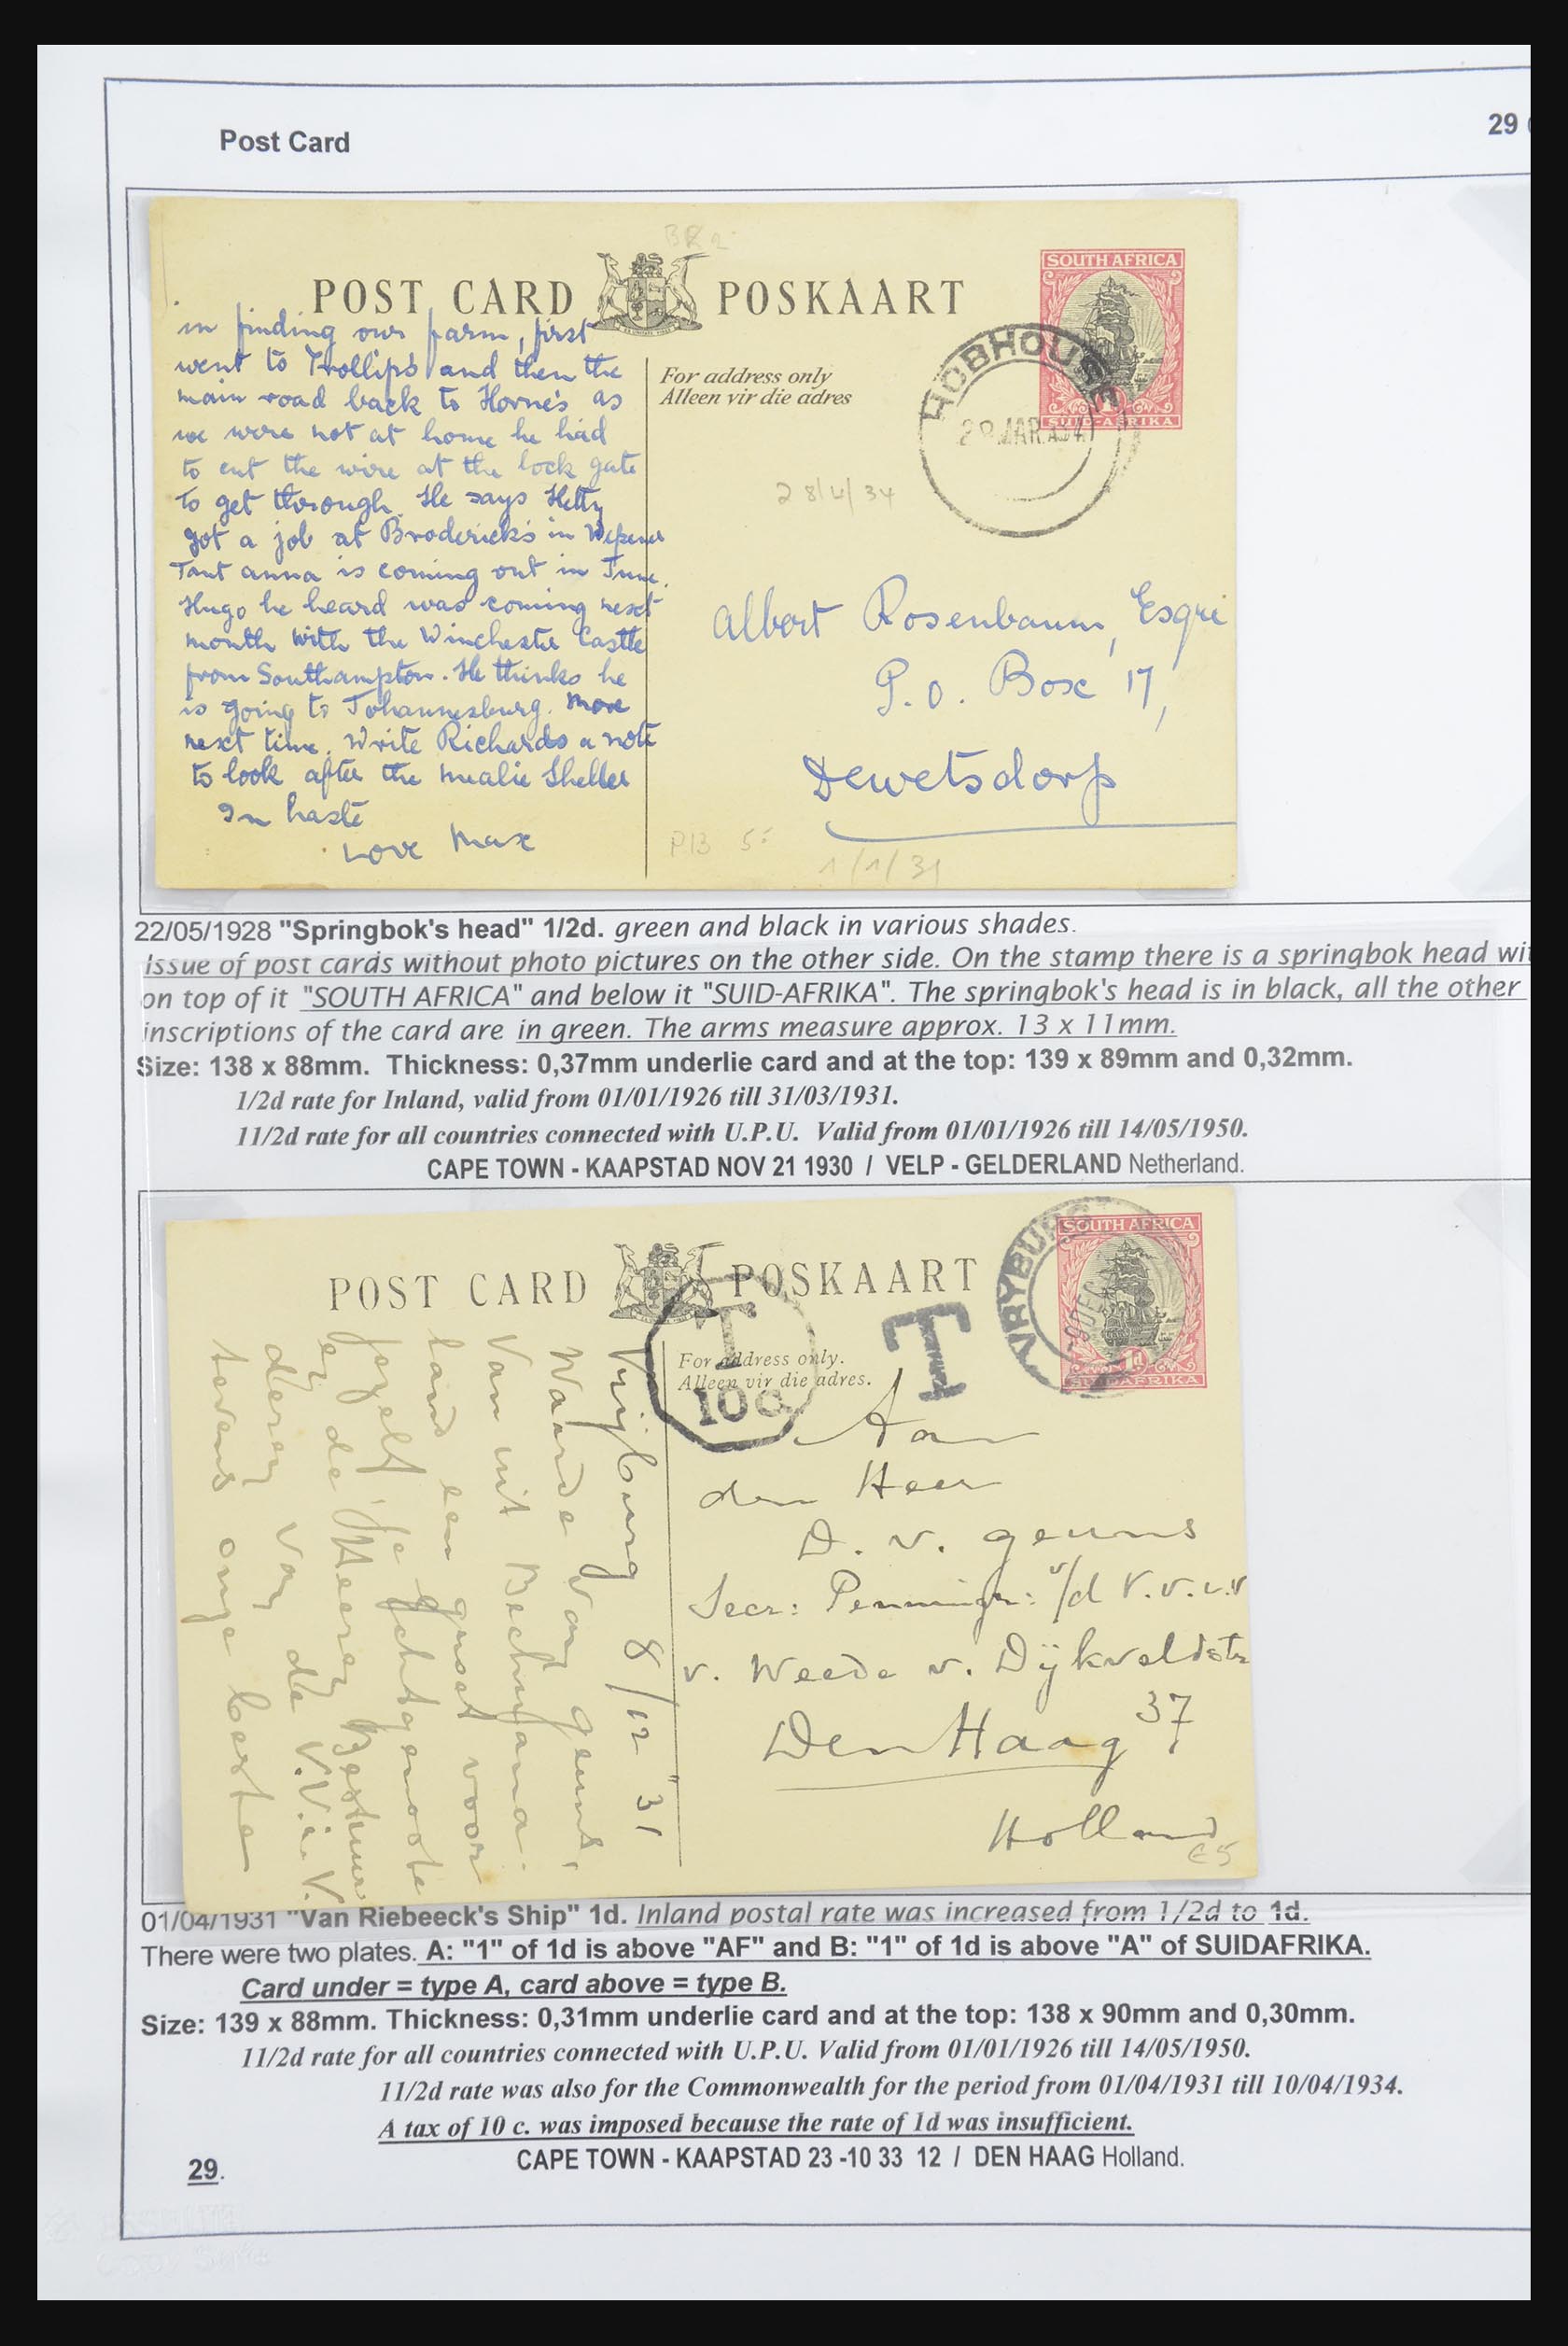 Post Card
29
BR 2
POST CARD POSKAART
SOUTH AFRICA
SUID-AFRIKA
HOBHOUSE
28 MAR 34
in finding our farm, first
went to Trollip's and then the
main road back to Horne's as
we were not at home he had
to cut the wire at the lock gate
to get through. He says Hetty
got a job at Broderick's in Wepener
Tant anna is coming out in June.
Hugo he heard was coming next
month with the Winchester Castle
from Southampton. He thinks he
is going to Johannesburg. More
next time. Write Richards a note
to look after the mealie Sheller
In haste
Love Max
For address only
Alleen vir die adres
28/4/34
Albert Rosenbaum, Esqre
P.O. Box 17,
Dewetsdorp
P13 5
1/1/31
22/05/1928 "Springbok's head" 1/2d. green and black in various shades.
Issue of post cards without photo pictures on the other side. On the stamp there is a springbok head
on top of it "SOUTH AFRICA" and below it "SUID-AFRIKA". The springbok's head is in black, all the other
inscriptions of the card are in green. The arms measure approx. 13 x 11mm.
Size: 138 x 88mm. Thickness: 0,37mm underlie card and at the top: 139 x 89mm and 0,32mm.
1/2d rate for Inland, valid from 01/01/1926 till 31/03/1931.
11/2d rate for all countries connected with U.P.U. Valid from 01/01/1926 till 14/05/1950.
CAPE TOWN - KAAPSTAD NOV 21 1930 / VELP - GELDERLAND Netherland.
POST CARD POSKAART
SOUTH AFRICA
1d
SUID-AFRIKA
VRYBURG
DEC
T
10 c
T
For address only.
Alleen vir die adres.
Vrijburg 8/12 "31
Waarde van geuns,
Van uit Bechuana-
land een groet voor
Jezelf, Je Echtgenoote
en de Heeren Bestuur
deren van de V.V.i.V.
tevens onze beste
Aan
den Heer
D. v. geuns
Secr: Penningr: v/d V.v.i.V
v. Weede v. Dijkveldstr
37
Den Haag
Holland
01/04/1931 "Van Riebeeck's Ship" 1d. Inland postal rate was increased from 1/2d to 1d.
There were two plates. A: "1" of 1d is above "AF" and B: "1" of 1d is above "A" of SUIDAFRIKA.
Card under = type A, card above = type B.
Size: 139 x 88mm. Thickness: 0,31mm underlie card and at the top: 138 x 90mm and 0,30mm.
11/2d rate for all countries connected with U.P.U. Valid from 01/01/1926 till 14/05/1950.
11/2d rate was also for the Commonwealth for the period from 01/04/1931 till 10/04/1934.
A tax of 10 c. was imposed because the rate of 1d was insufficient.
CAPE TOWN - KAAPSTAD 23 -10 33 12 / DEN HAAG Holland.
29.